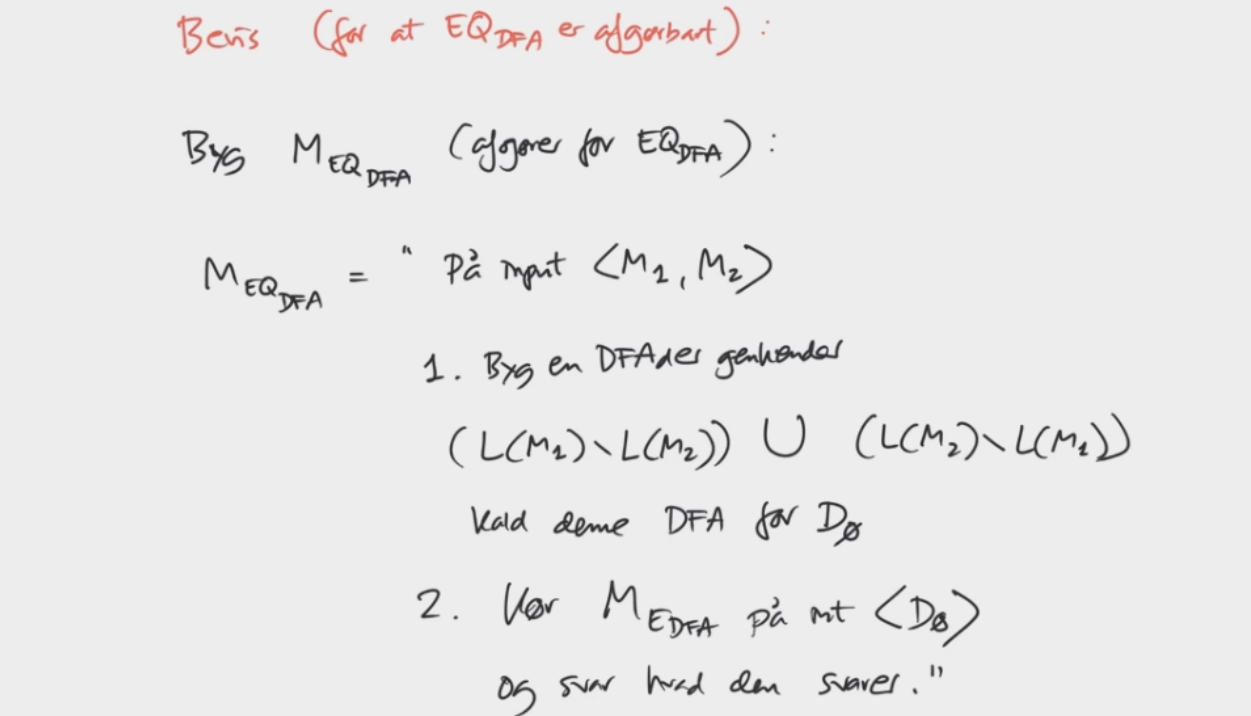 Bevis (for at EQ_DFA er afgørbart) :
Byg M_EQ_DFA (afgører for EQ_DFA) :
M_EQ_DFA = " På input <M₁, M₂>
1. Byg en DFA der genkender
(L(M₁) \ L(M₂)) ∪ (L(M₂) \ L(M₁))
Kald denne DFA for D_∅
2. Kør M_E_DFA på <D_∅>
og svar hvad den svarer."